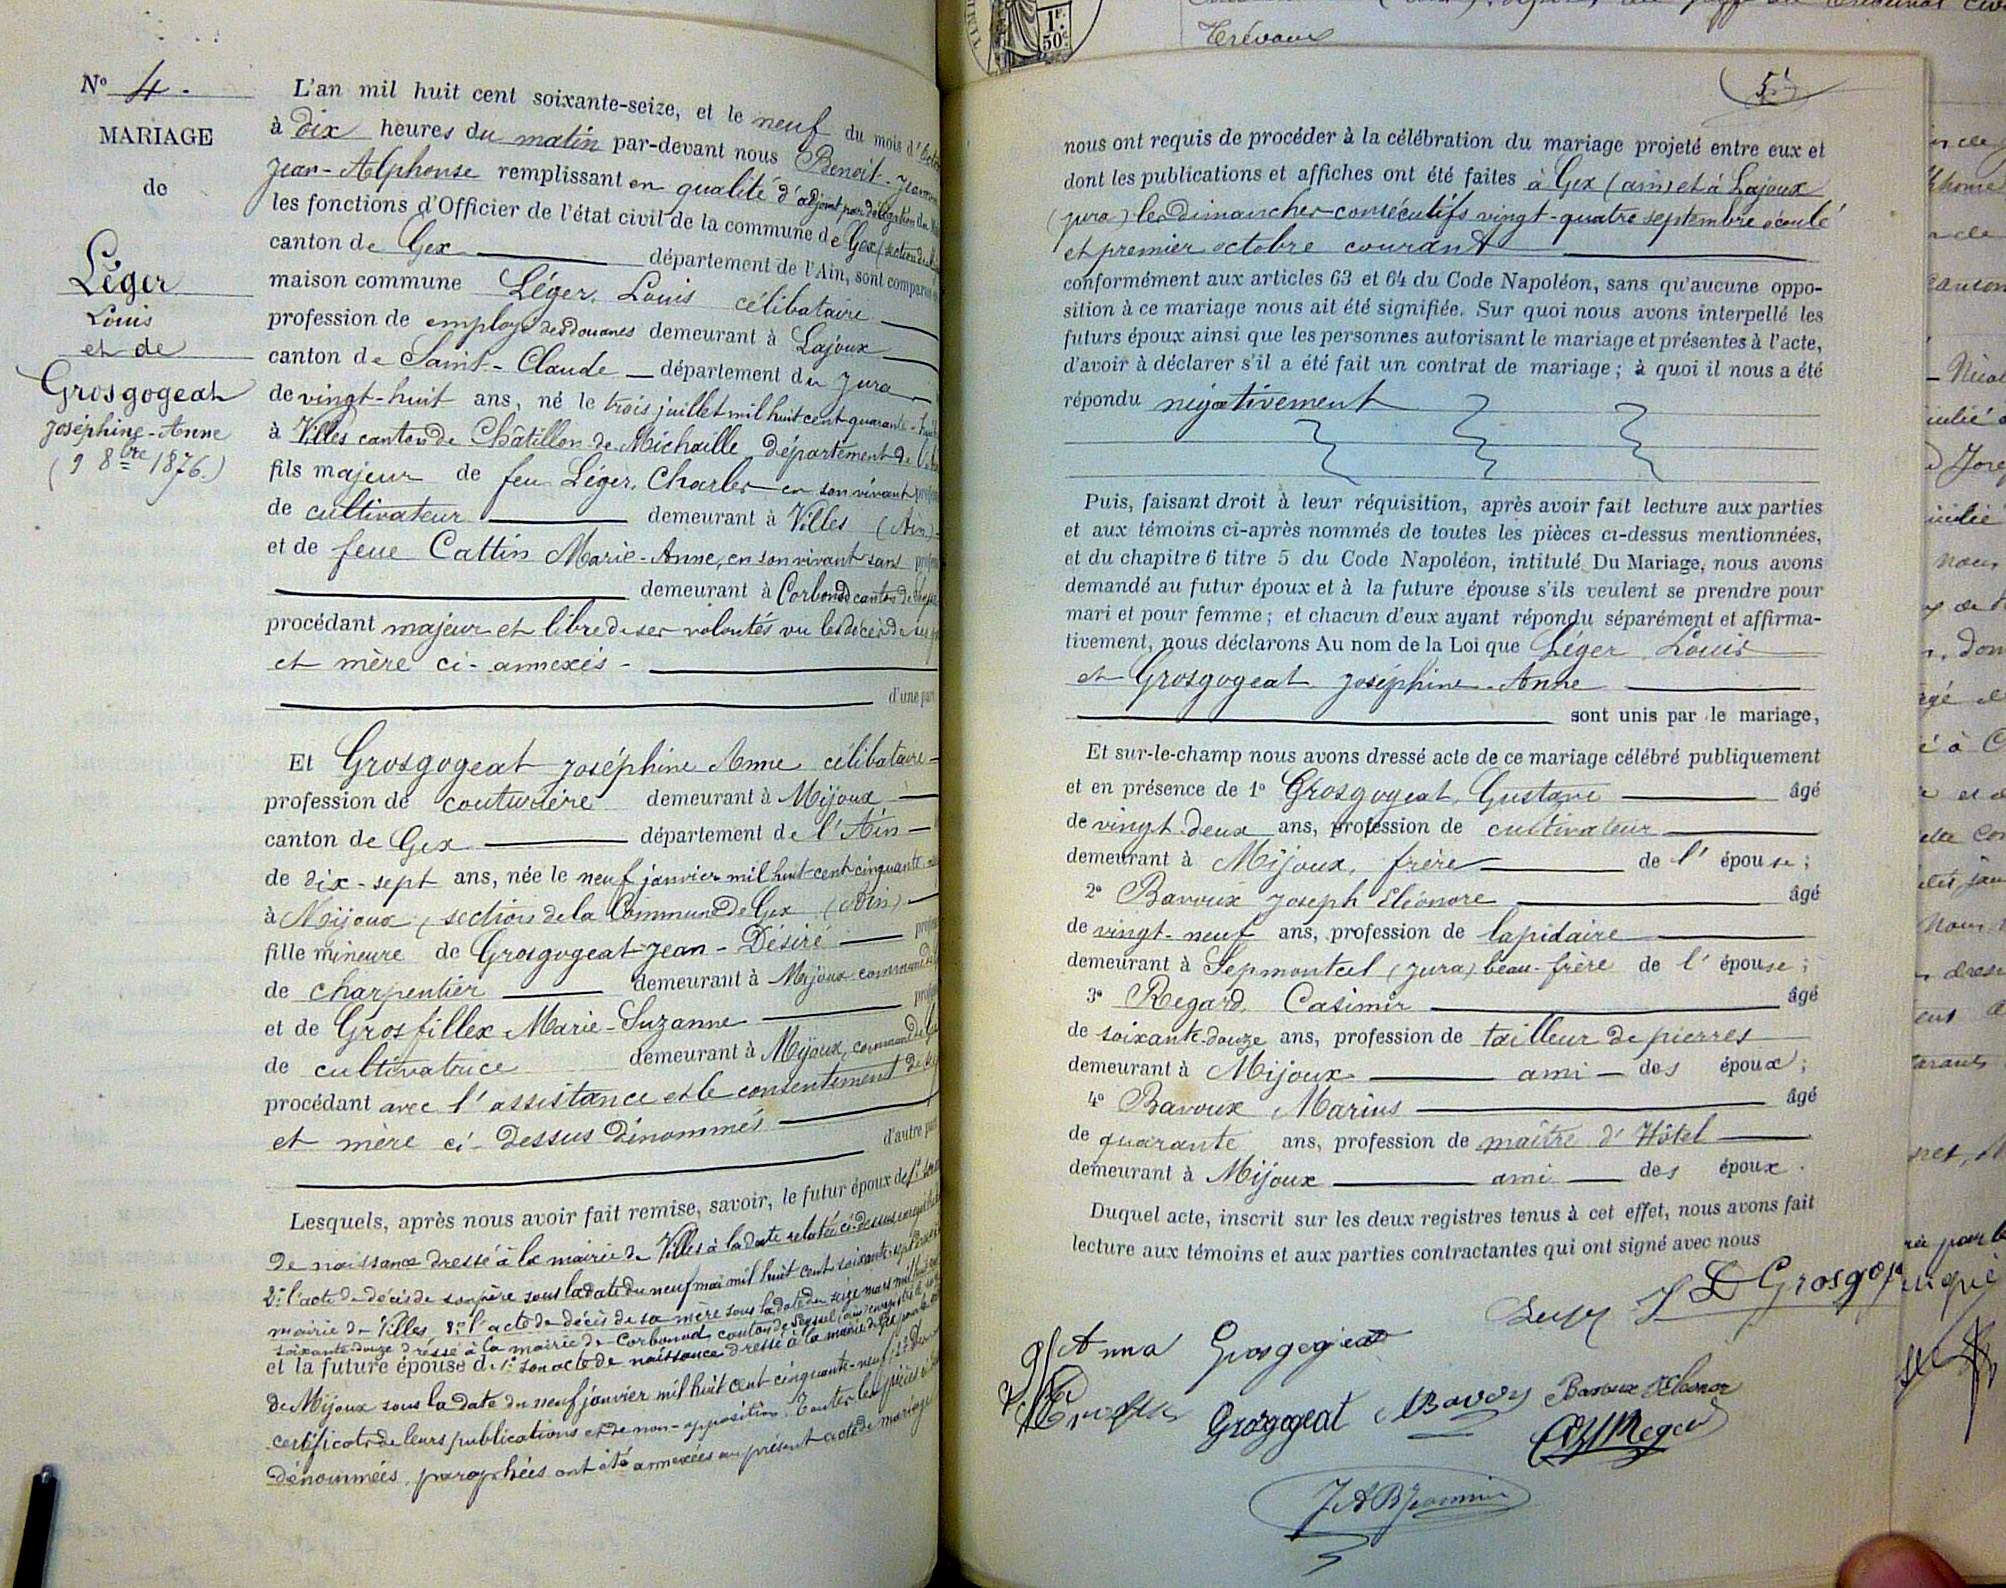 Nº 4.
MARIAGE
de
Léger
Louis
et de
Grosgogeat
Joséphine-Anne
(9 8bre 1876.)
L'an mil huit cent soixante-seize, et le neuf du mois d'
à dix heures du matin par-devant nous Benoit-
Jean-Alphonse remplissant en qualité d'adjoint par délégation du
les fonctions d'Officier de l'état civil de la commune de Gex (section de
canton de Gex département de l'Ain, sont comparus
maison commune Léger, Louis célibataire
profession de employé des douanes demeurant à Lajoux
canton de Saint-Claude département du Jura
de vingt-huit ans, né le trois juillet mil huit cent quarante-
à Villes canton de Châtillon de Michaille, département de l'
fils majeur de feu Léger, Charles en son vivant
de cultivateur demeurant à Villes (Ain)
et de feue Cattin Marie-Anne, en son vivant sans
demeurant à Corbonod canton de
procédant majeur et libre de ses volontés vu les décès de ses
et mère ci-annexés -
d'une part
Et Grosgogeat Joséphine Anne célibataire
profession de couturière demeurant à Mijoux
canton de Gex département de l'Ain
de dix-sept ans, née le neuf janvier mil huit cent cinquante
à Mijoux (section de la Commune de Gex (Ain)
fille mineure de Grosgogeat Jean-Désiré
de charpentier demeurant à Mijoux commune
et de Grosfillex Marie-Suzanne
de cultivatrice demeurant à Mijoux, commune de
procédant avec l'assistance et le consentement de
et mère ci-dessus dénommés
d'autre part
Lesquels, après nous avoir fait remise, savoir, le futur époux de
de naissance dressé à la mairie de Villes à la date relatée ci-dessus
2º l'acte de décès de son père sous la date du neuf mai mil huit cent soixante-sept
mairie de Villes, 3º l'acte de décès de sa mère sous la date du seize mars mil
soixante-douze dressé à la mairie de Corbonod, canton de Seyssel
et la future épouse de 1º son acte de naissance dressé à la mairie de Gex
de Mijoux sous la date du neuf janvier mil huit cent cinquante-neuf;
certificats de leurs publications et de non-opposition. Toutes les pièces
dénommées, paraphées ont été annexées au présent acte de mariage
1F.
50c
Trévoux
5
nous ont requis de procéder à la célébration du mariage projeté entre eux et
dont les publications et affiches ont été faites à Gex (ain) et à Lajoux
(jura) les dimanches consécutifs vingt-quatre septembre écoulé
et premier octobre courant
conformément aux articles 63 et 64 du Code Napoléon, sans qu'aucune oppo-
sition à ce mariage nous ait été signifiée. Sur quoi nous avons interpellé les
futurs époux ainsi que les personnes autorisant le mariage et présentes à l'acte,
d'avoir à déclarer s'il a été fait un contrat de mariage ; à quoi il nous a été
répondu négativement
Puis, faisant droit à leur réquisition, après avoir fait lecture aux parties
et aux témoins ci-après nommés de toutes les pièces ci-dessus mentionnées,
et du chapitre 6 titre 5 du Code Napoléon, intitulé Du Mariage, nous avons
demandé au futur époux et à la future épouse s'ils veulent se prendre pour
mari et pour femme ; et chacun d'eux ayant répondu séparément et affirma-
tivement, nous déclarons Au nom de la Loi que Léger Louis
et Grosgogeat Joséphine-Anne
sont unis par le mariage,
Et sur-le-champ nous avons dressé acte de ce mariage célébré publiquement
et en présence de 1º Grosgogeat, Gustave âgé
de vingt-deux ans, profession de cultivateur
demeurant à Mijoux, frère de l'épouse ;
2º Bavoux Joseph Eléonore âgé
de vingt-neuf ans, profession de lapidaire
demeurant à Sepmontcel (Jura) beau-frère de l'épouse ;
3º Regard, Casimir âgé
de soixante-douze ans, profession de tailleur de pierres
demeurant à Mijoux ami des époux ;
4º Bavoux Marius âgé
de quarante ans, profession de maître d'Hôtel
demeurant à Mijoux ami des époux.
Duquel acte, inscrit sur les deux registres tenus à cet effet, nous avons fait
lecture aux témoins et aux parties contractantes qui ont signé avec nous
J D Grosgoj
Anna Grosgogeat
Grosgogeat Bavoux Bavoux Eléonor